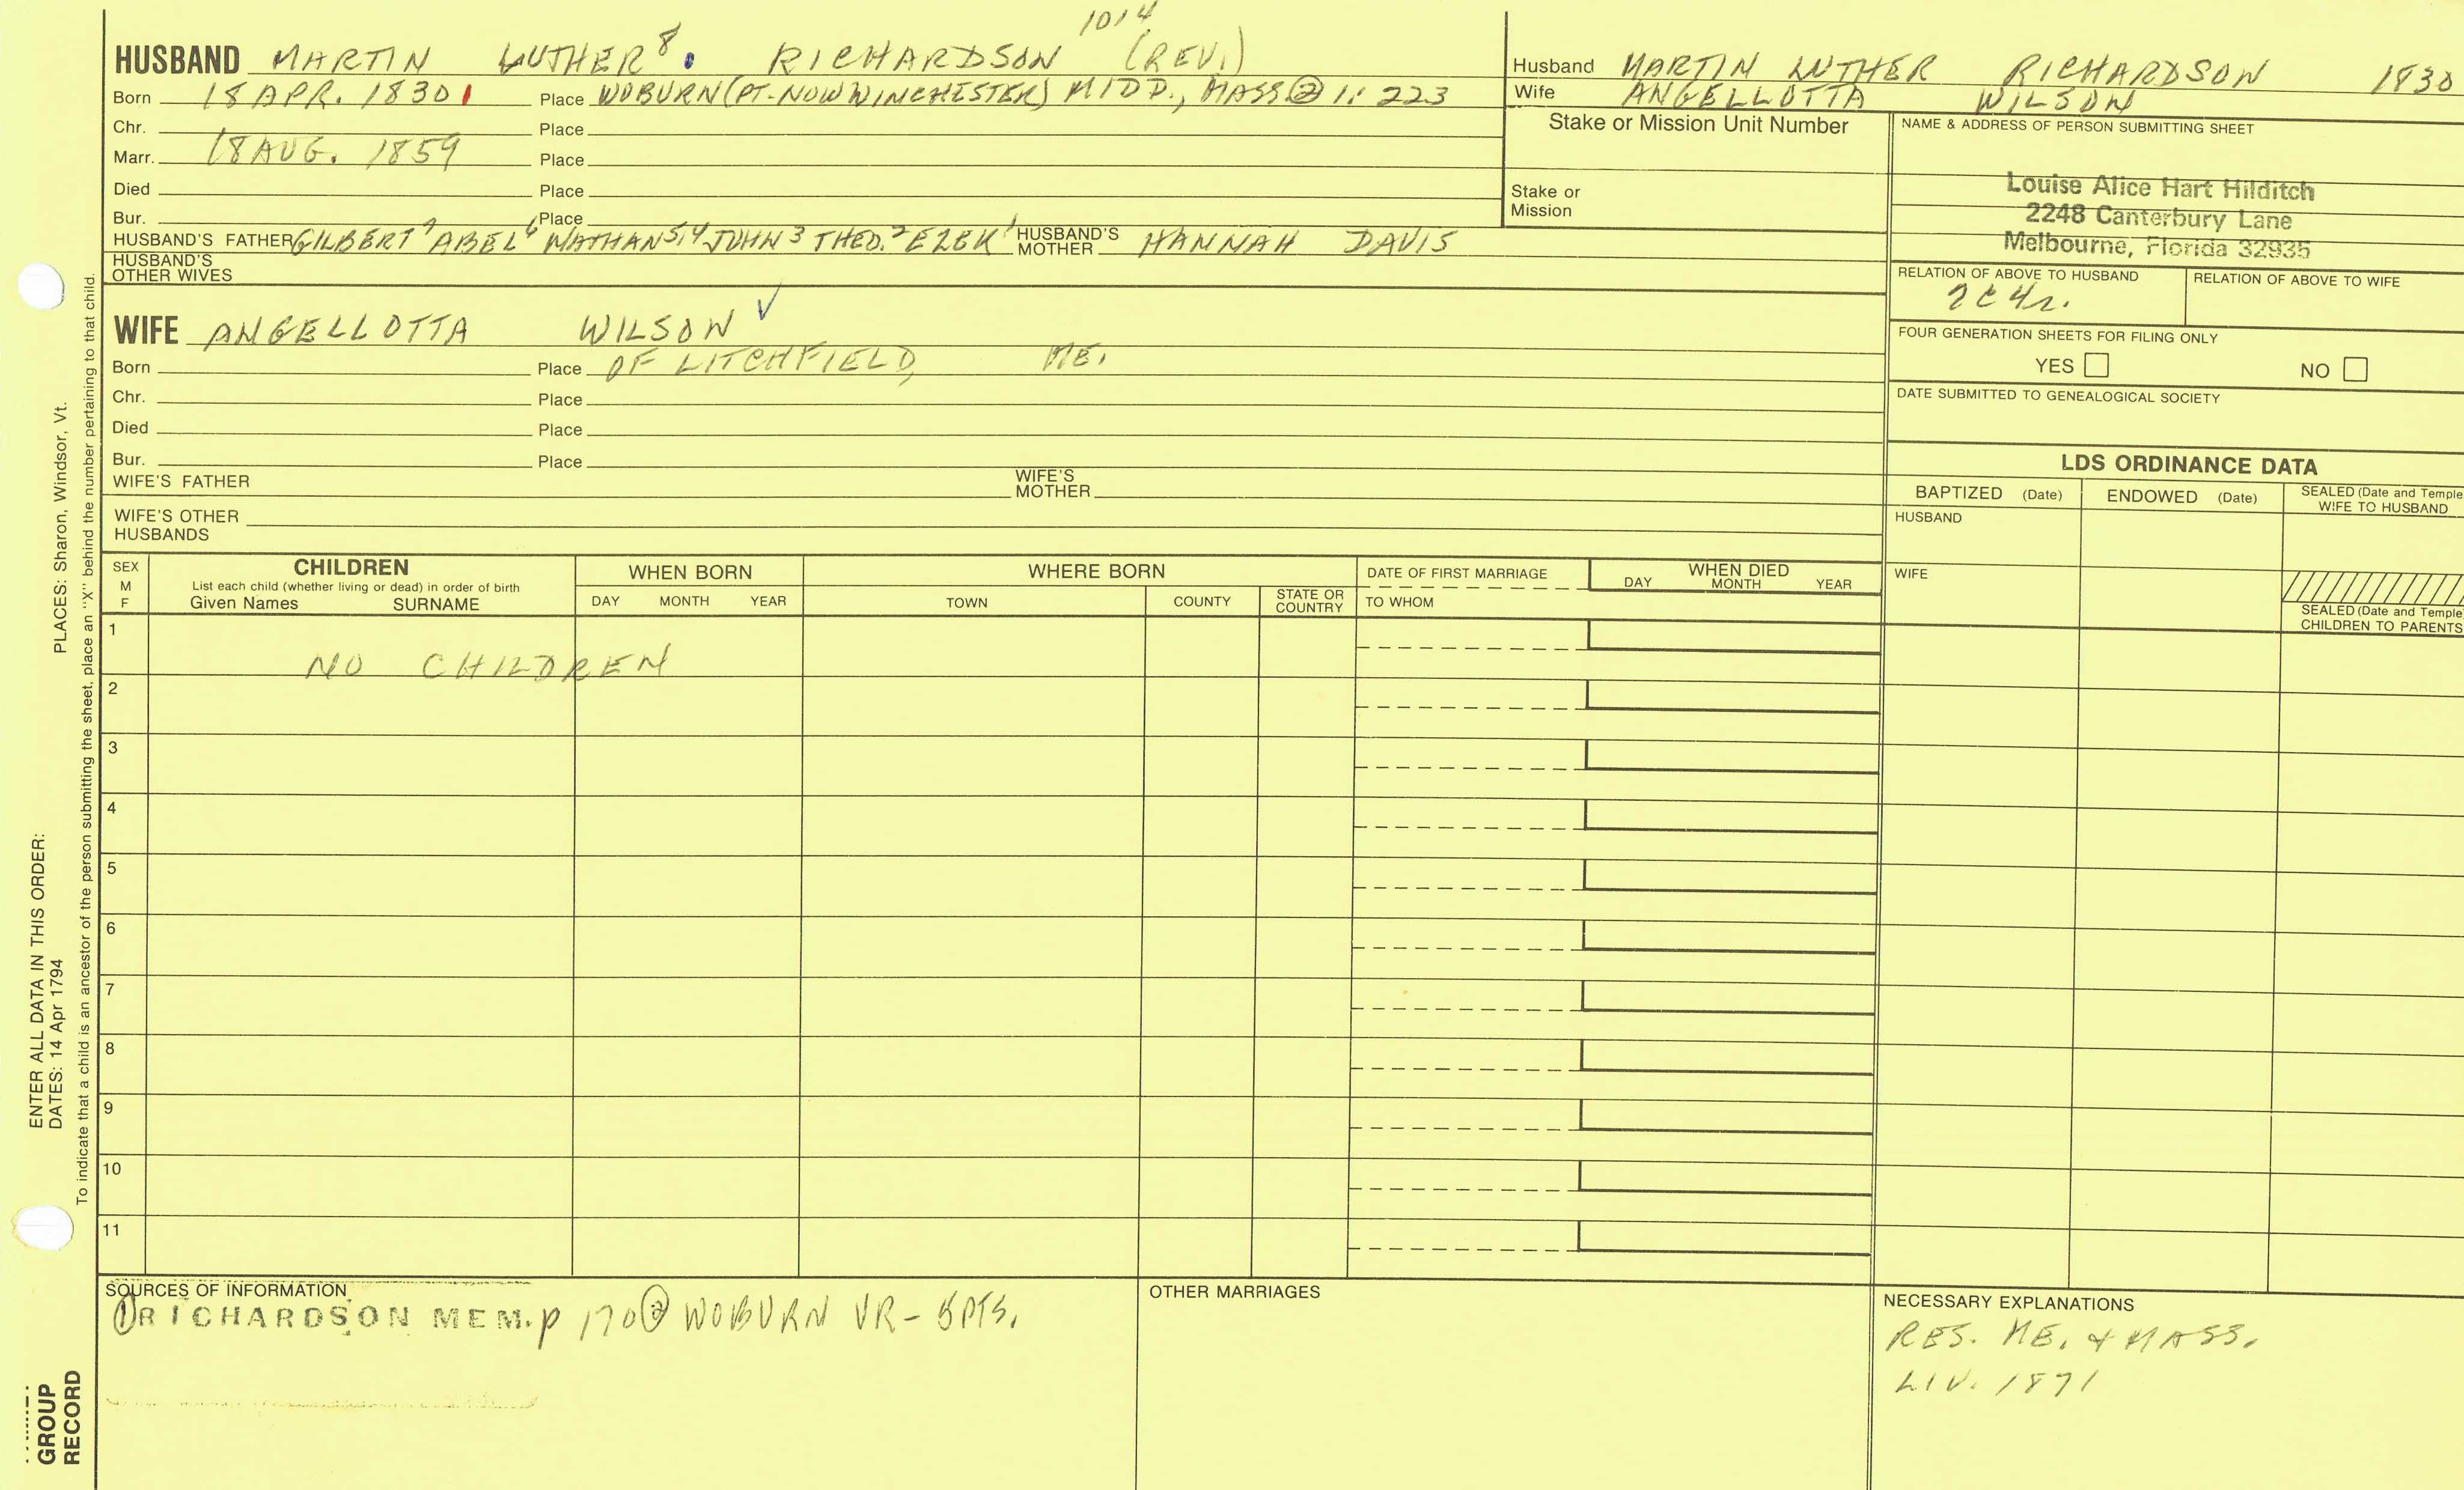 1014
HUSBAND MARTIN LUTHER 8. RICHARDSON (REV.)
Born 18 APR. 1830 Place WOBURN (PT. NOW WINCHESTER) MIDD., MASS ② 1: 223
Chr. Place
Marr. 18 AUG. 1859 Place
Died Place
Bur. Place
HUSBAND'S FATHER GILBERT 7 ABEL 6 NATHAN 5,4 JOHN 3 THEO. 2 EZEK 1 HUSBAND'S MOTHER HANNAH DAVIS
HUSBAND'S
OTHER WIVES
Husband MARTIN LUTHER RICHARDSON 1830
Wife ANGELLOTTA WILSON
Stake or Mission Unit Number
Stake or
Mission
NAME & ADDRESS OF PERSON SUBMITTING SHEET
Louise Alice Hart Hilditch
2248 Canterbury Lane
Melbourne, Florida 32935
RELATION OF ABOVE TO HUSBAND RELATION OF ABOVE TO WIFE
2C4r.
FOUR GENERATION SHEETS FOR FILING ONLY
YES NO
DATE SUBMITTED TO GENEALOGICAL SOCIETY
WIFE ANGELLOTTA WILSON ✓
Born Place OF LITCHFIELD, ME.
Chr. Place
Died Place
Bur. Place
WIFE'S FATHER WIFE'S MOTHER
WIFE'S OTHER
HUSBANDS
LDS ORDINANCE DATA
BAPTIZED (Date) ENDOWED (Date) SEALED (Date and Temple
WIFE TO HUSBAND
HUSBAND
WIFE
SEALED (Date and Temple
CHILDREN TO PARENTS
SEX
M
F
CHILDREN
List each child (whether living or dead) in order of birth
Given Names SURNAME
WHEN BORN
DAY MONTH YEAR
WHERE BORN
TOWN COUNTY STATE OR COUNTRY
DATE OF FIRST MARRIAGE
TO WHOM
WHEN DIED
DAY MONTH YEAR
1
NO CHILDREN
2
3
4
5
6
7
8
9
10
11
SOURCES OF INFORMATION
① RICHARDSON MEM. p 170 ② WOBURN VR - 5 PTS.
OTHER MARRIAGES
NECESSARY EXPLANATIONS
RES. ME. & MASS.
LIV. 1871
ENTER ALL DATA IN THIS ORDER:
DATES: 14 Apr 1794 PLACES: Sharon, Windsor, Vt.
To indicate that a child is an ancestor of the person submitting the sheet, place an "X" behind the number pertaining to that child.
GROUP
RECORD